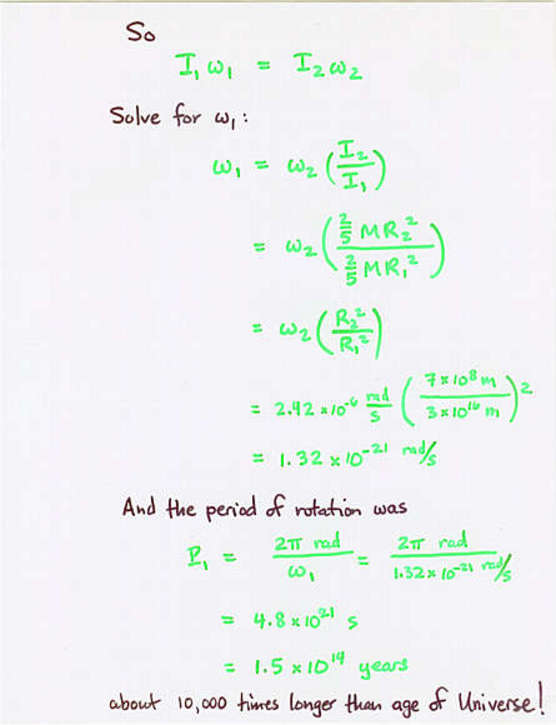 So
I₁ ω₁ = I₂ ω₂
Solve for ω₁:
ω₁ = ω₂ (I₂/I₁)
= ω₂ (2/5 MR₂² / 2/5 MR₁²)
= ω₂ (R₂²/R₁²)
= 2.92 × 10⁻⁶ rad/s (7 × 10⁸ m / 3 × 10¹⁶ m)²
= 1.32 × 10⁻²¹ rad/s
And the period of rotation was
P₁ = 2π rad / ω₁ = 2π rad / 1.32 × 10⁻²¹ rad/s
= 4.8 × 10²¹ s
= 1.5 × 10¹⁴ years
about 10,000 times longer than age of Universe!